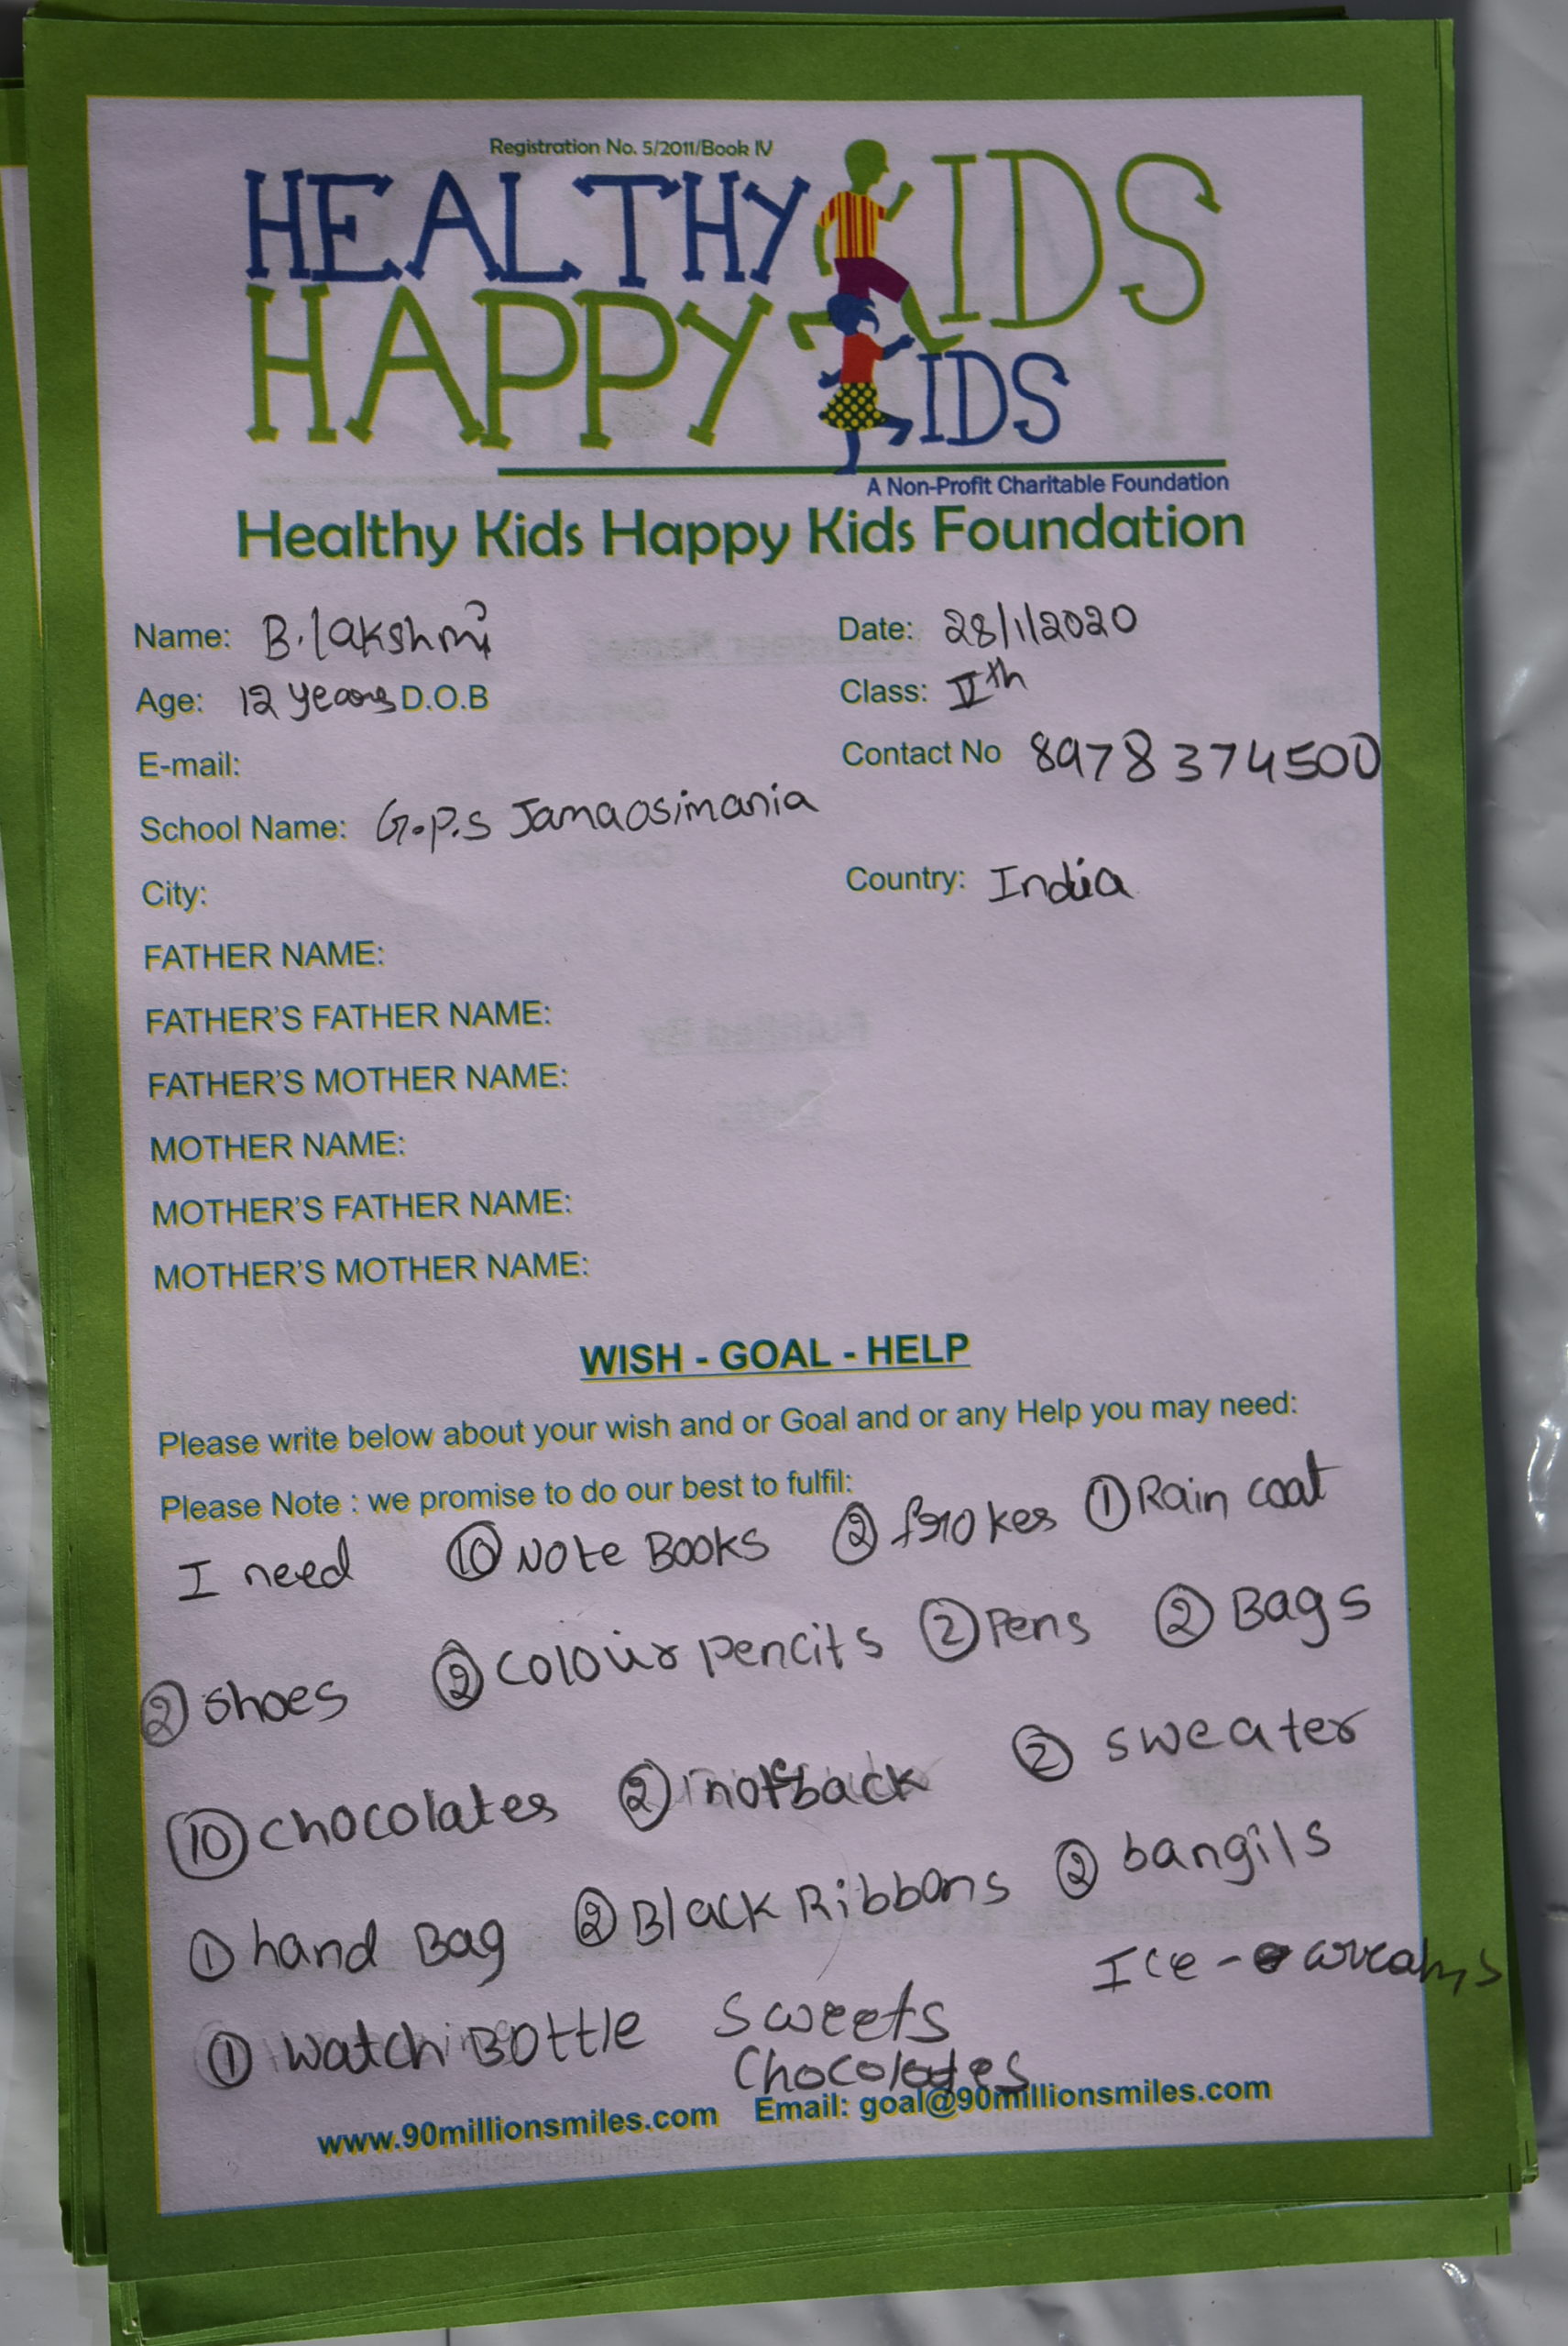 Registration No. 5/2011/Book IV
HEALTHY KIDS
HAPPY KIDS
A Non-Profit Charitable Foundation
Healthy Kids Happy Kids Foundation
Name: B.lakshmi Date: 28/1/2020
Age: 12 years D.O.B Class: Vth
E-mail: Contact No 8978374500
School Name: G.P.S Jamaosimania
City: Country: India
FATHER NAME:
FATHER'S FATHER NAME:
FATHER'S MOTHER NAME:
MOTHER NAME:
MOTHER'S FATHER NAME:
MOTHER'S MOTHER NAME:
WISH - GOAL - HELP
Please write below about your wish and or Goal and or any Help you may need:
Please Note : we promise to do our best to fulfil:
I need 10 Note Books 2 frokes 1 Rain coat
2 shoes 2 colour pencits 2 Pens 2 Bags
10 chocolates 2 sweater
1 hand Bag 2 Black Ribbons 2 bangils
1 watch Bottle Sweets Ice-creams
Chocolates
www.90millionsmiles.com Email: goal@90millionsmiles.com